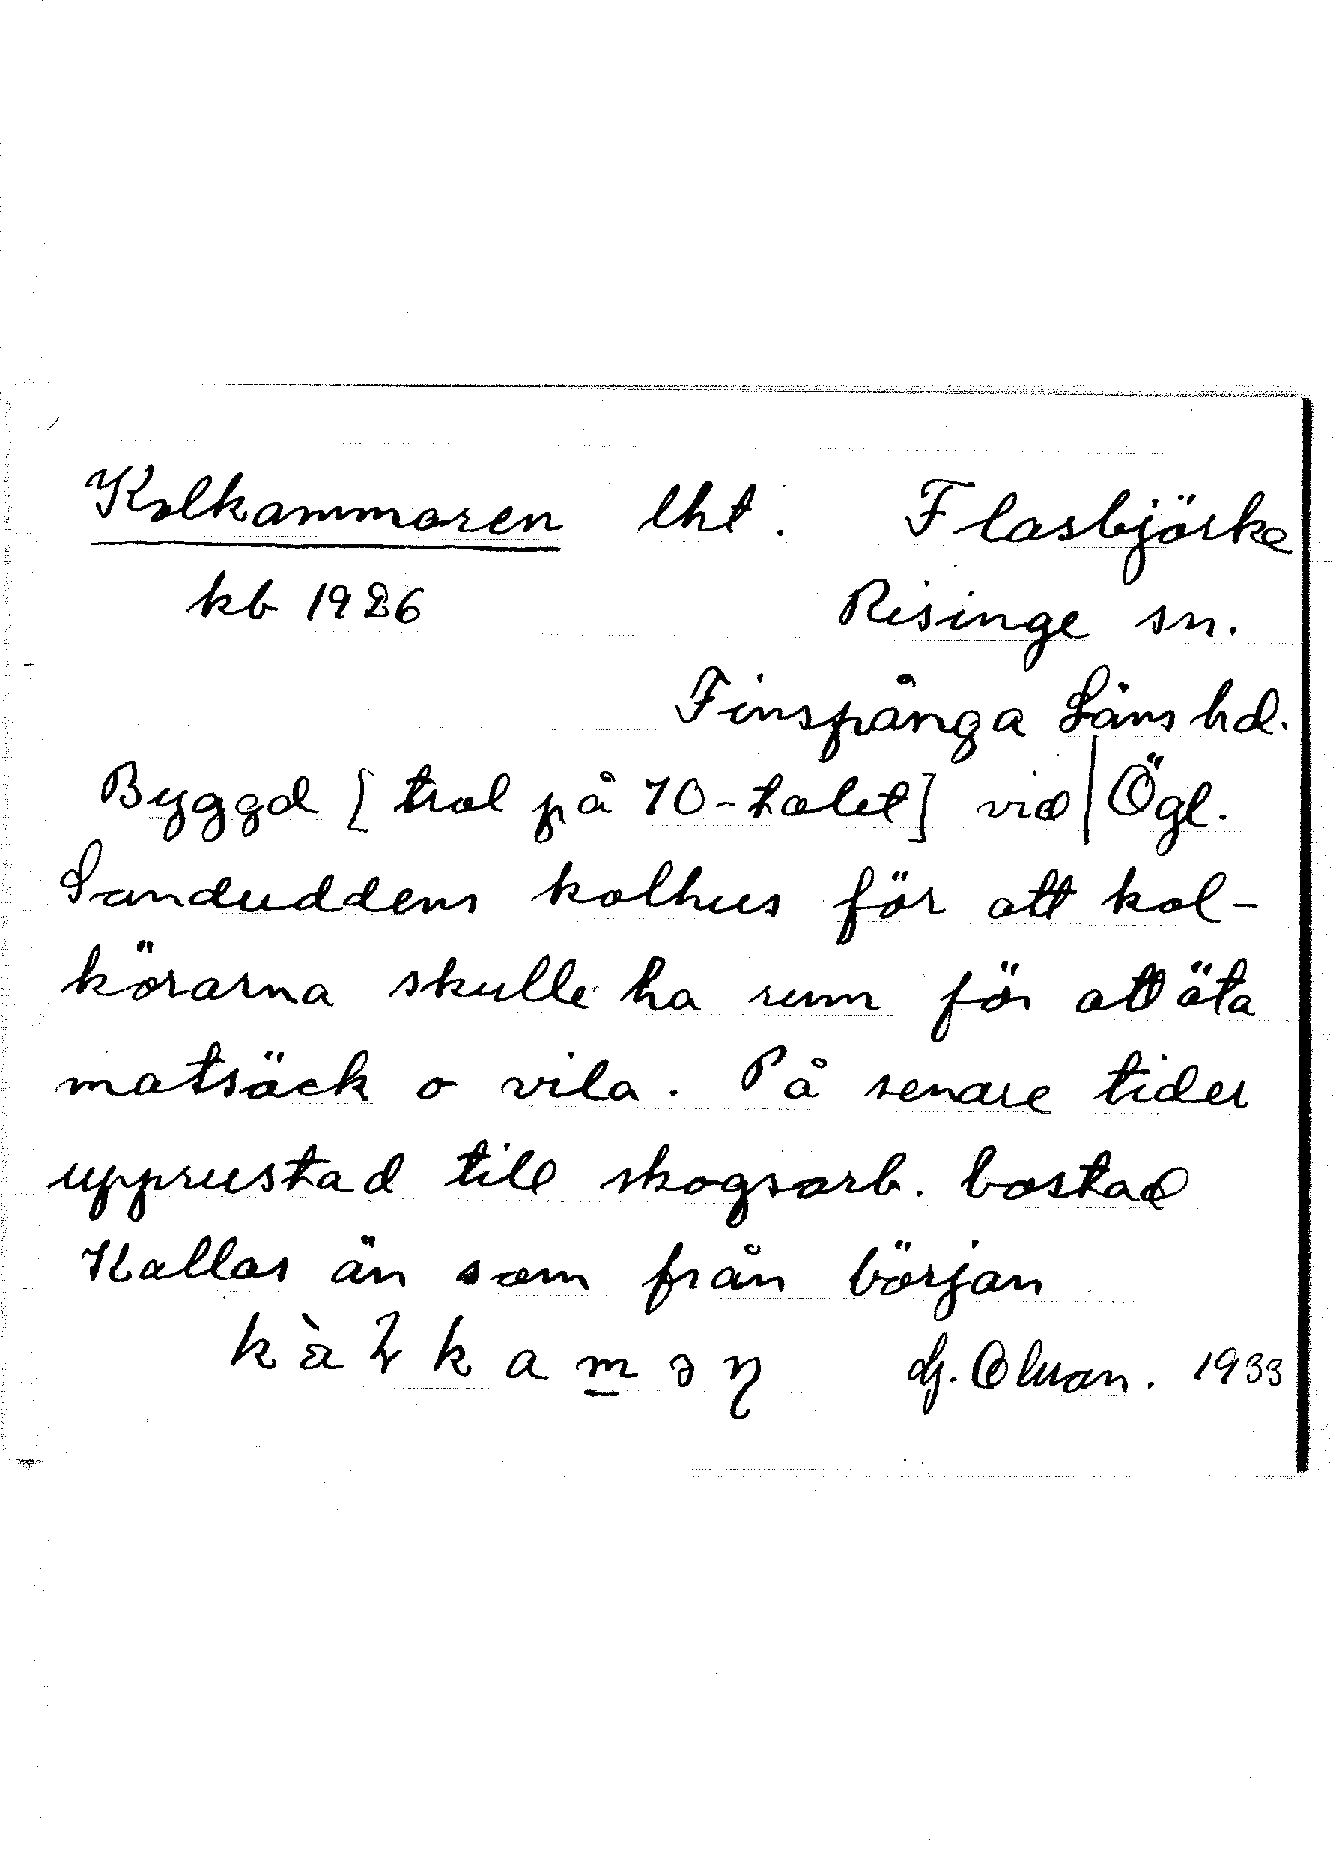 Kolkammaren lht. Flasbjörke
kb 1926 Risinge sn.
Finspånga Läns hd.
Byggd [trol på 70-talet] vid | Ögl.
Sanduddens kolhus för att kol-
körarna skulle ha rum för att äta
matsäck o vila. På senare tider
upprustad till skogsarb. bostad
Kallas än som från början
Olsson. 1933